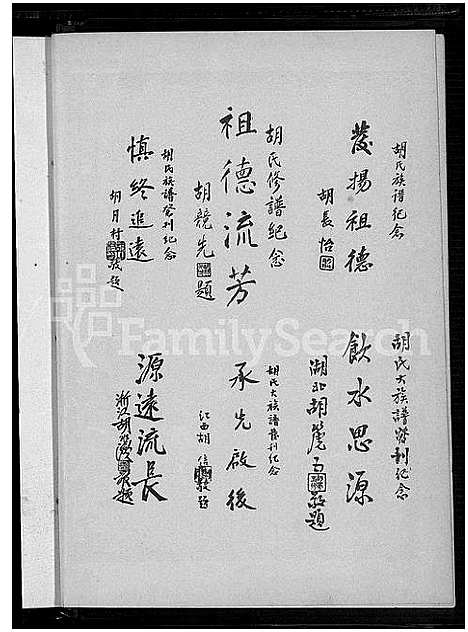 胡氏族譜紀念
發揚祖德
胡長怡
胡氏大族譜發刊紀念
飲水思源
湖北胡
題
胡氏修譜紀念
祖德流芳
胡競先題
胡氏大族譜發刊紀念
承先啟後
江西胡信敬題
胡氏族譜發刊紀念
慎終追遠
胡月村敬題
源遠流長
浙江胡
敬題
FamilySearch